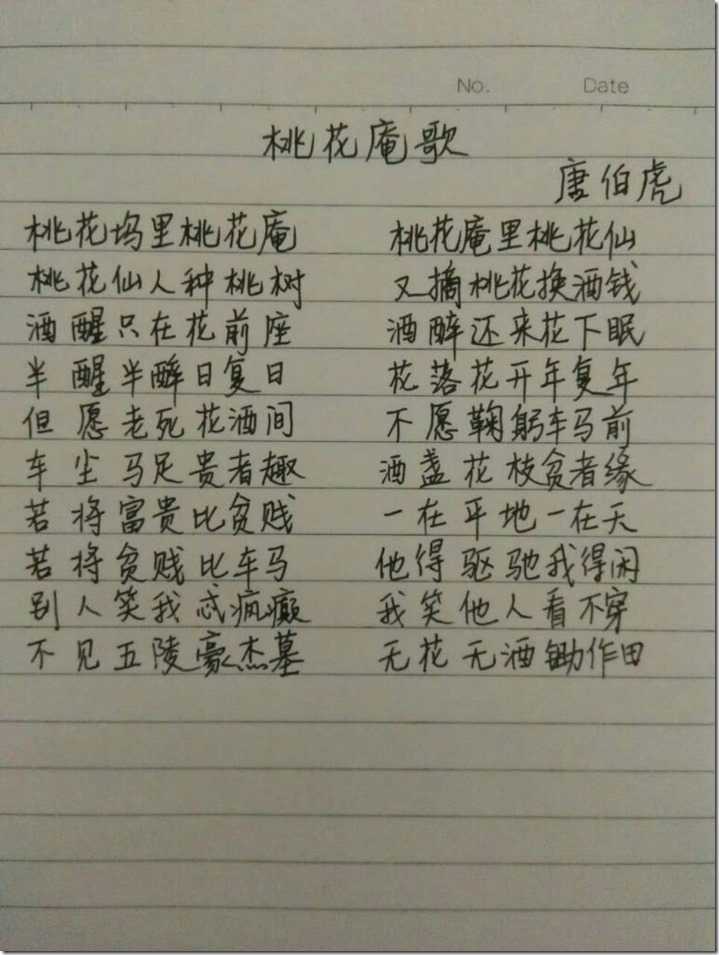 No. Date
桃花庵歌
唐伯虎
桃花坞里桃花庵 桃花庵里桃花仙
桃花仙人种桃树 又摘桃花换酒钱
酒醒只在花前座 酒醉还来花下眠
半醒半醉日复日 花落花开年复年
但愿老死花酒间 不愿鞠躬车马前
车尘马足贵者趣 酒盏花枝贫者缘
若将富贵比贫贱 一在平地一在天
若将贫贱比车马 他得驱驰我得闲
别人笑我忒疯癫 我笑他人看不穿
不见五陵豪杰墓 无花无酒锄作田